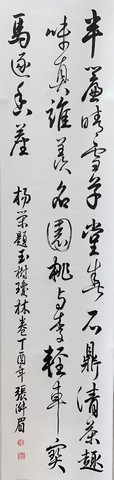 半簾晴雪草堂春石鼎清茶趣
味真誰羨名園桃與李輕車寶
馬逐香塵
楊榮題玉樹瓊林卷丁酉年張澍眉